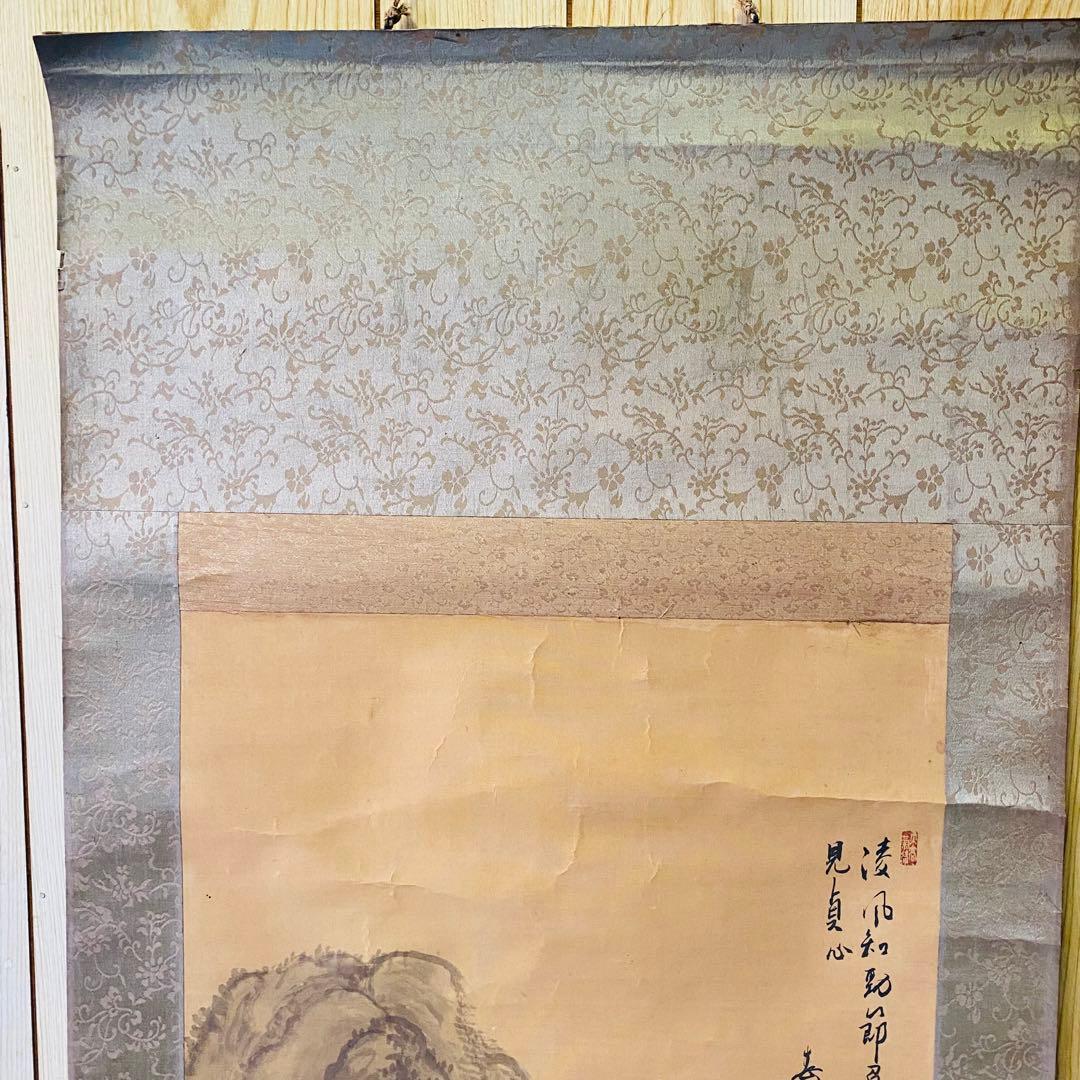 凌風知勁節
見貞心